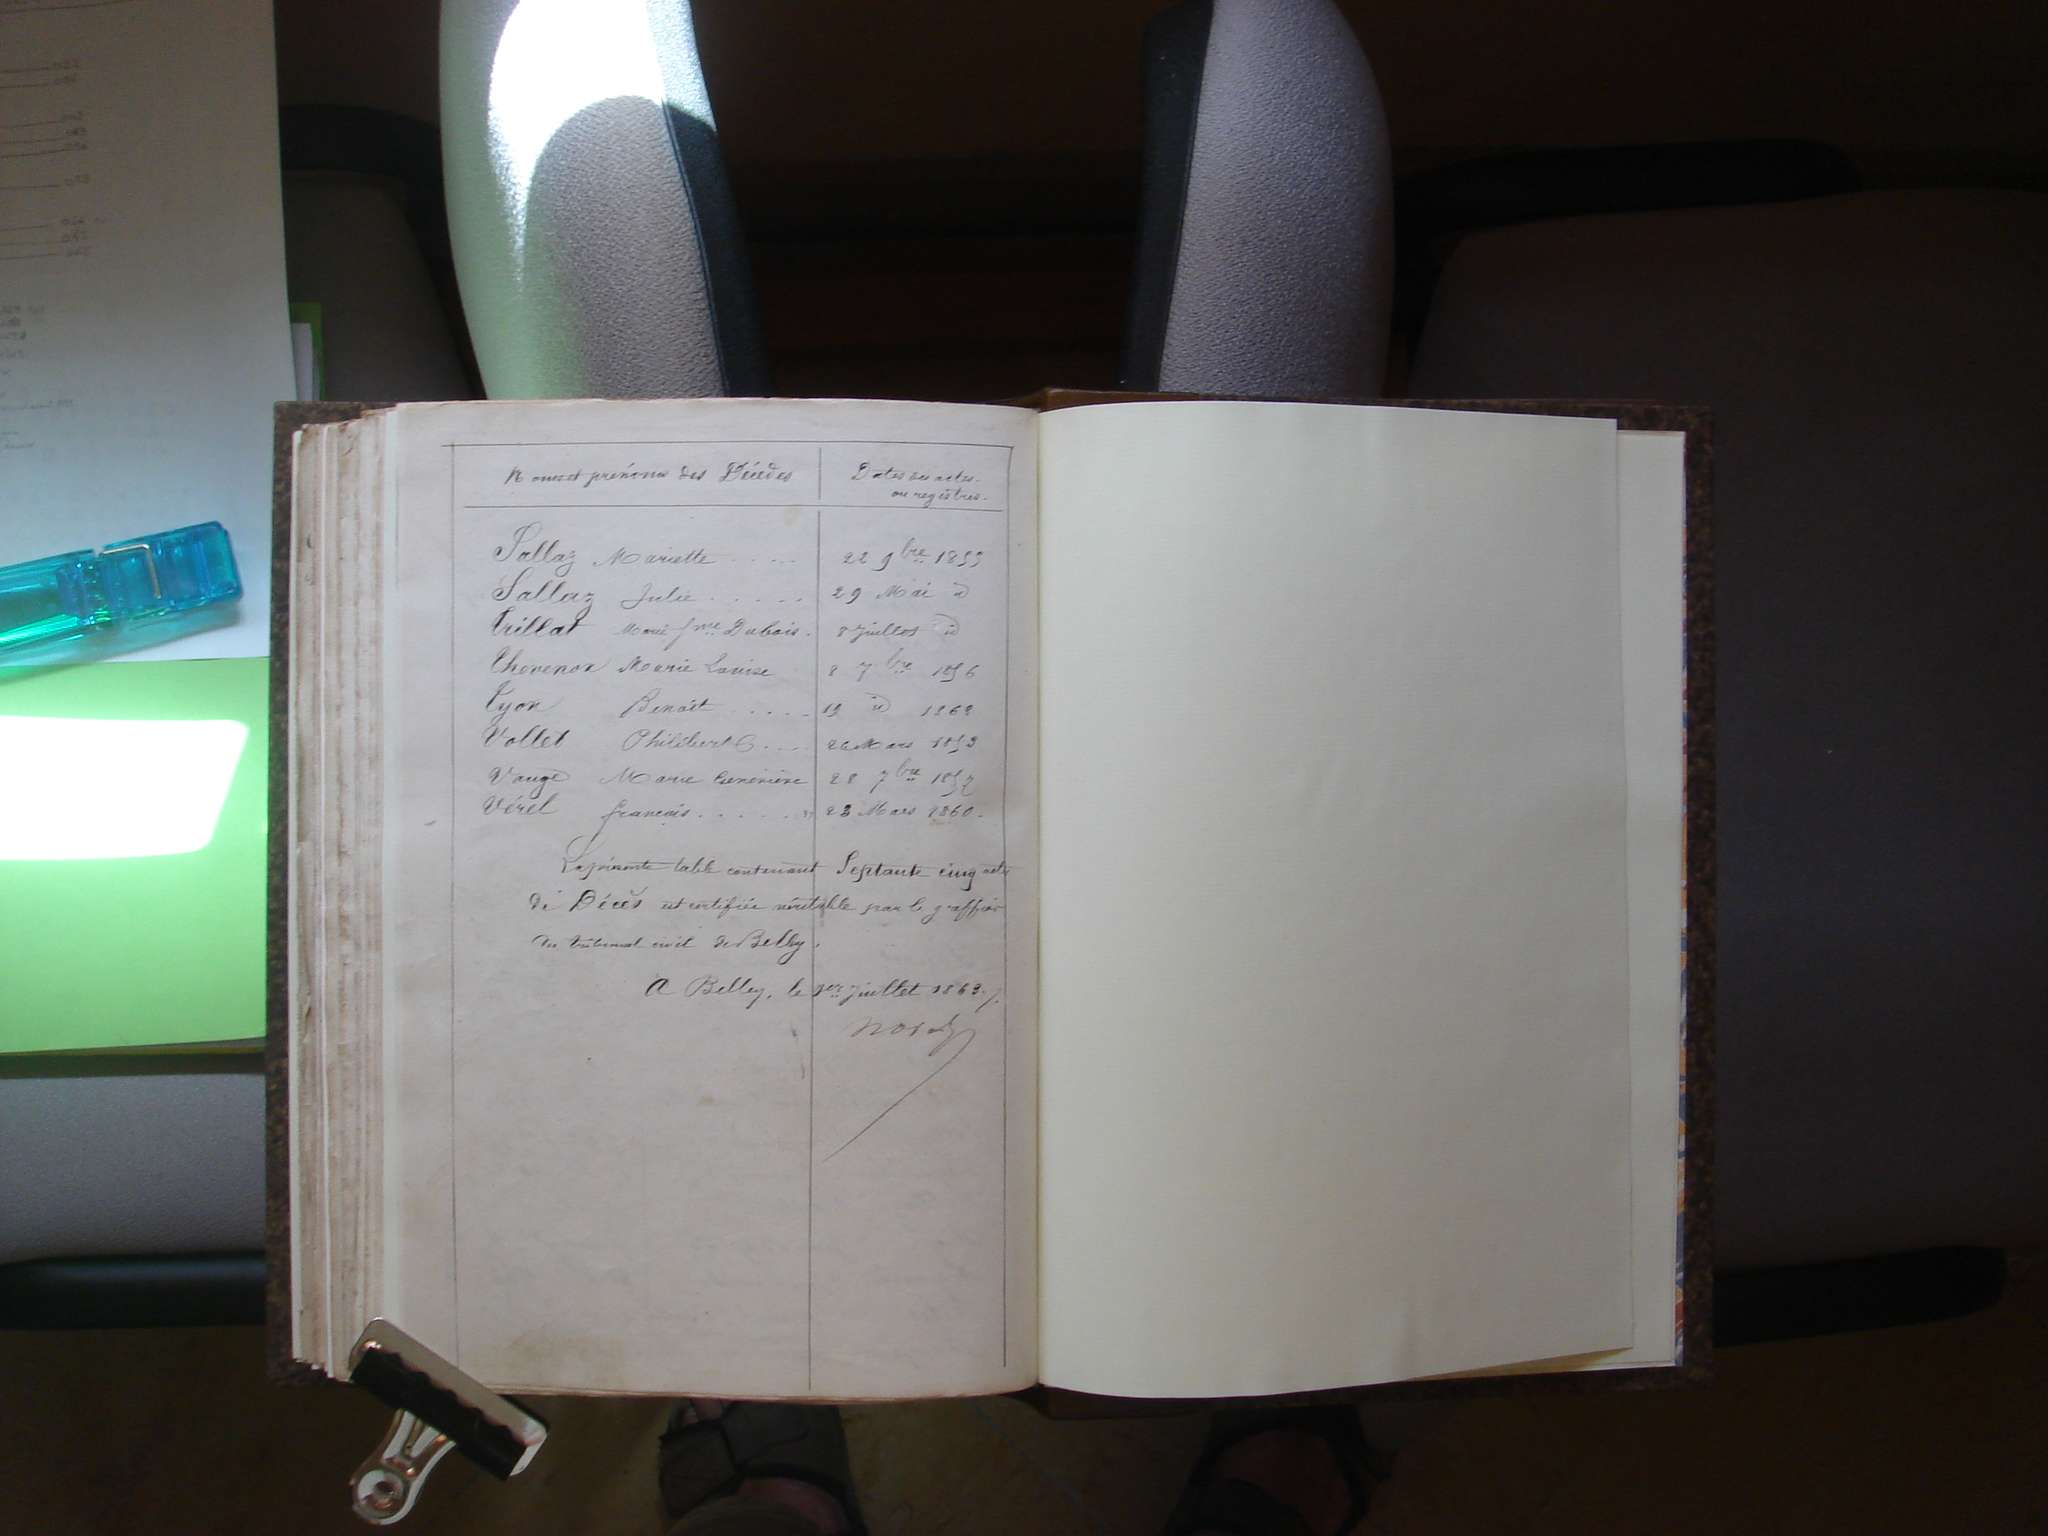 Noms et prénoms des Décédés
Dates des actes
ou registres.
Sallaz Mariette . . . . 22 9bre 1859
Sallaz Julie . . . . . 29 Mai id
Trillat Marie fme Dubois. 8 Juillet id
Thevenon Marie Louise 8 7bre 1856
Tyon Benoit . . . . 19 id 1862
Vollet Philibert . . . 26 Mars 1853
Vauge Marie Genevieve 28 7bre 1857
Vérel françois . . . . . 23 Mars 1860.
La présente table contenant Septante cinq actes
de Décès est certifiée véritable par le greffier
du tribunal civil de Belley.
A Belley, le 1er Juillet 1863.